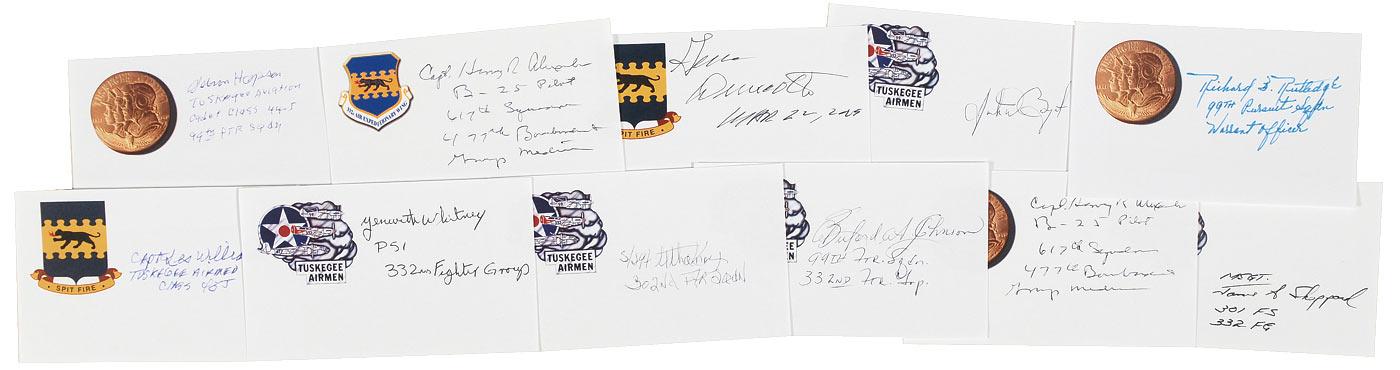 Tuskegee Aviation
Cadet Class 44-J
99th FTR Sqdn
Capt. Henry R
B-25 Pilot
617th Squadron
477th Bombardment
Group Medium
332 AIR EXPEDITIONARY WING
SPIT FIRE
Gene
TUSKEGEE
AIRMEN
Richard S. Rutledge
99th Pursuit Sqdn
Warrant Officer
SPIT FIRE
Capt Les Williams
Tuskegee Airmen
Class 43J
TUSKEGEE
AIRMEN
Yenwith Whitney
PSI
332nd Fighter Group
TUSKEGEE
AIRMEN
S/Sgt
302nd FTR SQDN
Buford A. Johnson
99th Ftr. Sqdn.
332nd Ftr. Grp.
Capt. Henry R
B-25 Pilot
617th Squadron
477th Bombardment
Group Medium
M/SGT.
James A Sheppard
301 FS
332 FG